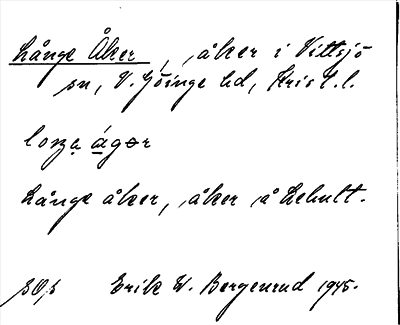 Långe Åker, åker i Vittsjö
sn, V. Göinge hd, Krist. l.
Långe åker, åker å Lehult.
Erik W. Bergenrud 1945.